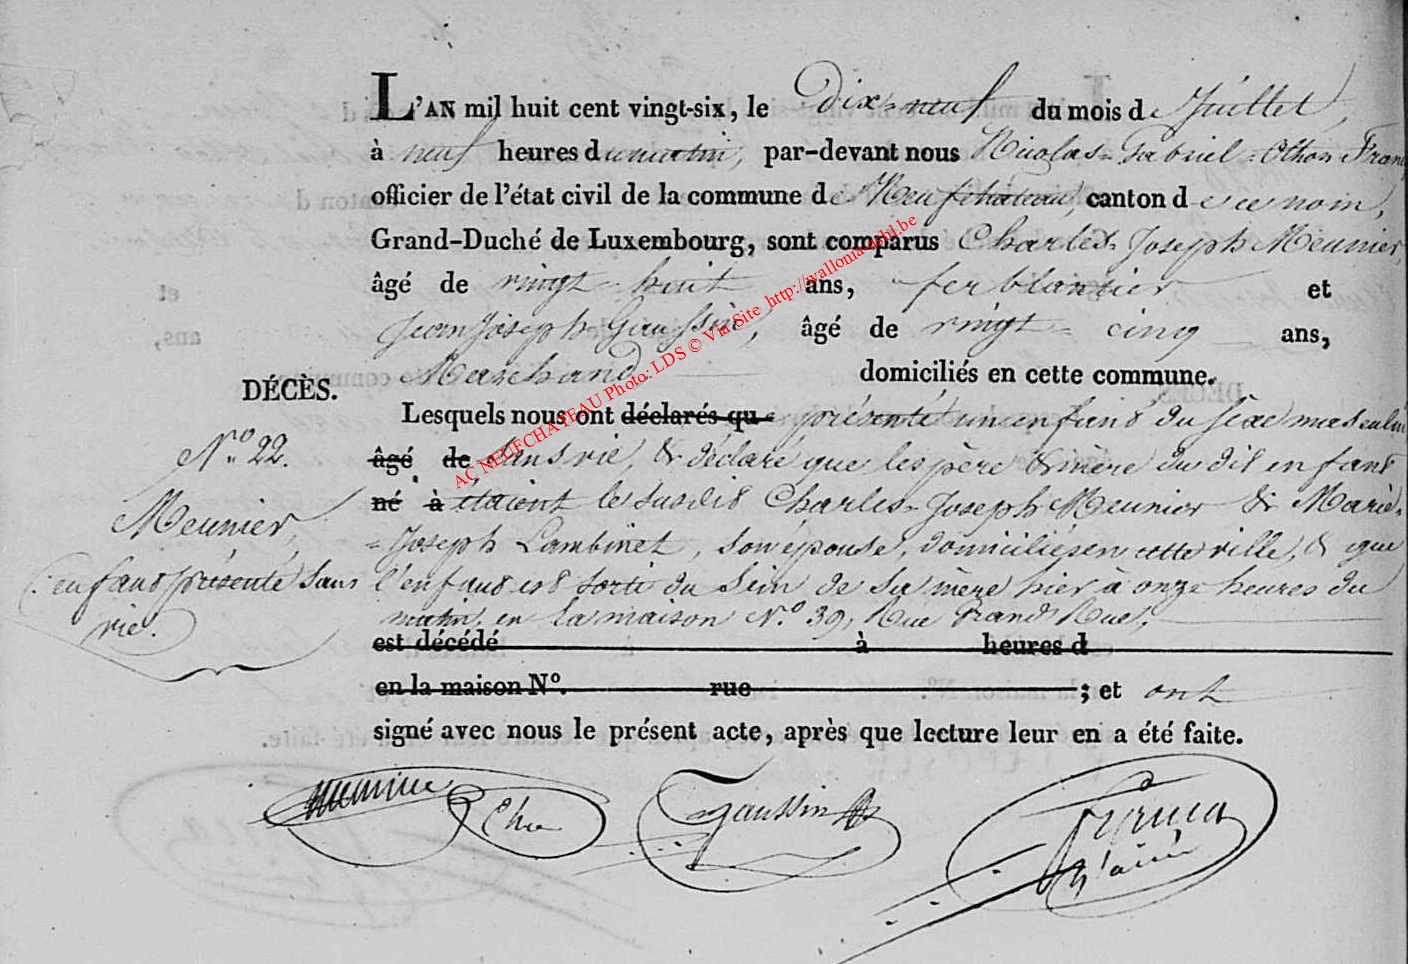 L'AN mil huit cent vingt-six, le dix-neuf du mois de Juillet,
à neuf heures du matin, par-devant nous Nicolas-Gabriel-Othon Franc
officier de l'état civil de la commune de Neufchateau, canton de ce nom,
Grand-Duché de Luxembourg, sont comparus Charles-Joseph Meunier,
âgé de vingt-huit ans, ferblantier et
Jean Joseph Gaussin, âgé de vingt-cinq ans,
Marchand domiciliés en cette commune.
DÉCÈS.
Lesquels nous ont déclarés que présenté un enfant du sexe masculin
âgé de sans vie, & déclaré que les père & mère du dit enfant
né à étaient le susdit Charles-Joseph Meunier & Marie-
-Joseph Lambinet, son épouse, domiciliés en cette ville, & que
l'enfant est sorti du sein de sa mère hier à onze heures du
matin, en la maison N.o 39, Rue Grand Rue,
est décédé à heures d
en la maison No. rue ; et ont
signé avec nous le présent acte, après que lecture leur en a été faite.
N.o 22.
Meunier,
(: enfant présenté sans
vie.
meunier Chs
Gaussin
AC NEUFCHATEAU Photo: LDS © Via Site http://wallonia-asbl.be